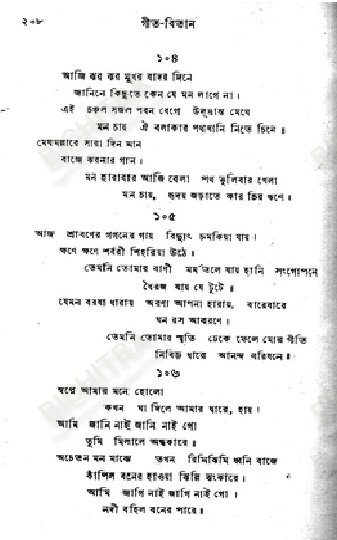 ২০৮ গীত-বিতান
১০৪
আজি ঝর ঝর মুখর বাদর দিনে
জানিনে কিছুতে কেন যে মন লাগে না।
এই চঞ্চল সজল পবন বেগে উদ্ভ্রান্ত মেঘে
মন চায় ঐ বলাকার পথখানি নিতে চিনে॥
মেঘমল্লারে সারা দিন মান
বাজে ঝরনার গান।
মন হারাবার আজি বেলা পথ ভুলিবার খেলা
মন চায়, হৃদয় জড়াতে কার চির ঋণে।
১০৫
আজ শ্রাবণের গগনের গায় বিদ্যুৎ চমকিয়া যায়।
ক্ষণে ক্ষণে শর্বরী শিহরিয়া উঠে।
তেমনি তোমার বাণী মর্মতলে যায় হানি সংগোপনে
ধৈরজ যায় যে টুটে।
যেমন বরষা ধারায় অরণ্য আপনা হারায়, বারেবারে
ঘন রস আবরণে।
তেমনি তোমার স্মৃতি ঢেকে ফেলে মোর গীতি
নিবিড় ধারে আনন্দ বরিষনে।
১০৬
স্বপ্নে আমার মনে হোলো
কখন ঘা দিলে আমার দ্বারে, হায়।
আমি জানি নাই জানি নাই গো
তুমি মিলালে অন্ধকারে।
অচেতন মন মাঝে তখন রিমিঝিমি ধ্বনি বাজে
কাঁপিল বনের হাওয়া ঝিল্লি ঝংকারে।
আমি জাগি নাই জাগি নাই গো।
নদী বহিল বনের পারে।